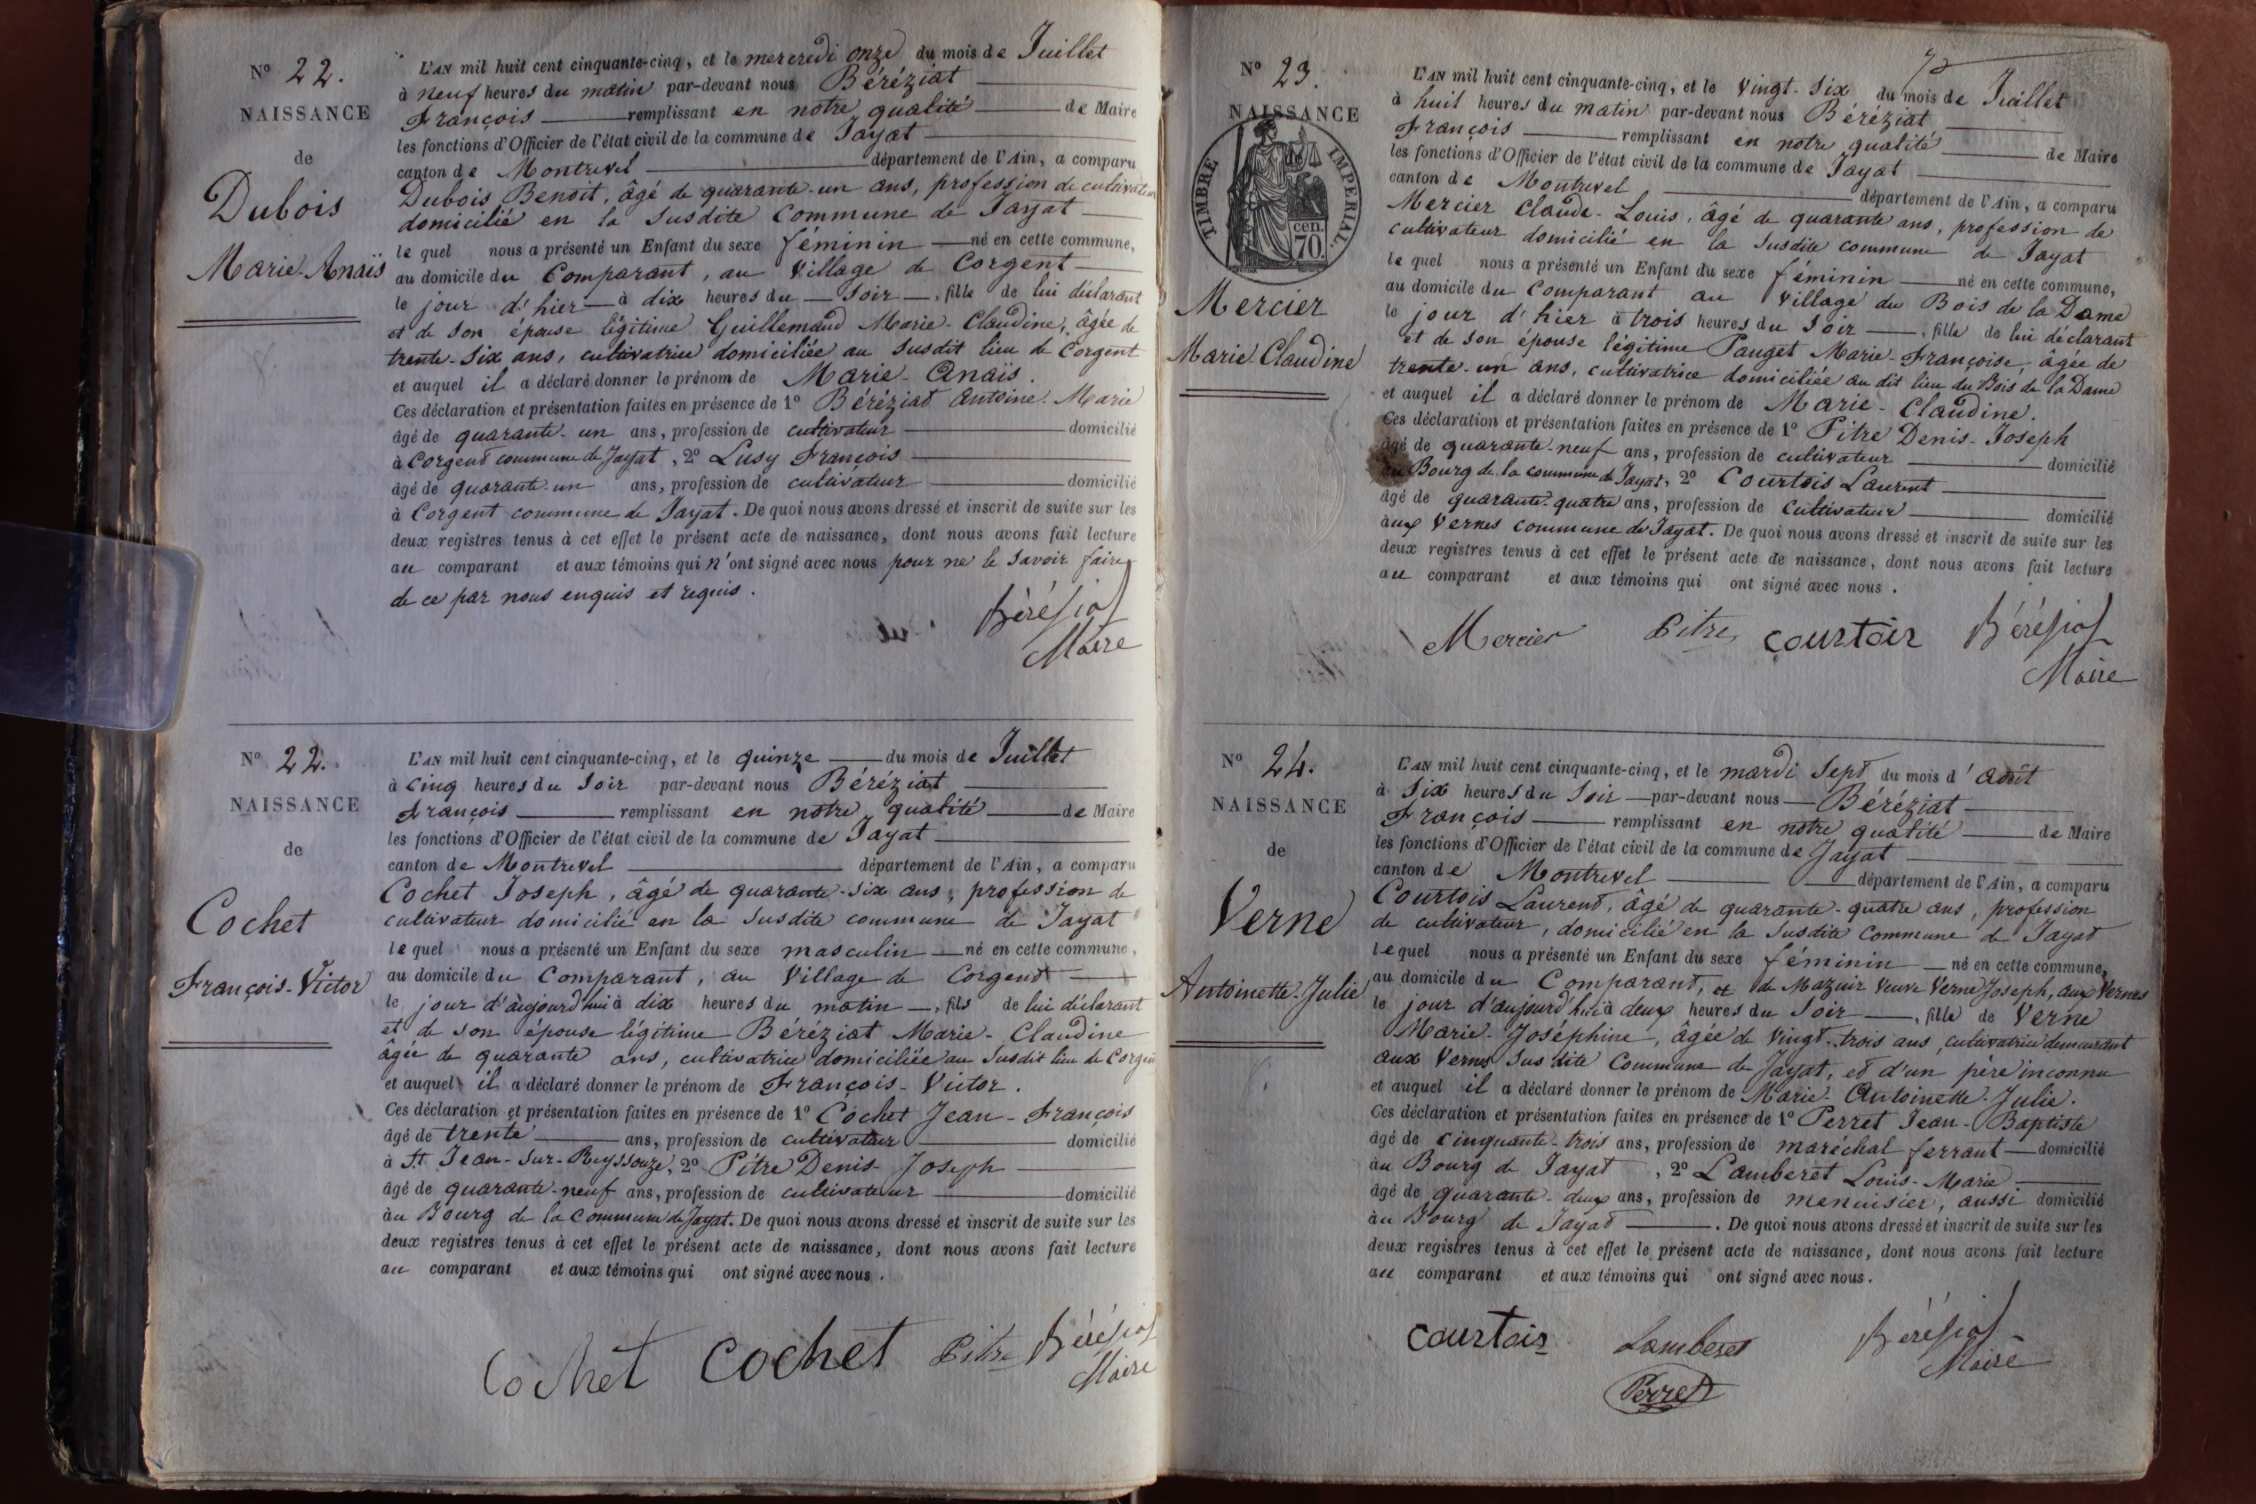 N° 22.
NAISSANCE
de
Dubois
Marie-Anaïs
L'AN mil huit cent cinquante-cinq, et le mercredi onze du mois de Juillet
à neuf heures du matin par-devant nous Béréziat
François remplissant en notre qualité de Maire
les fonctions d'Officier de l'état civil de la commune de Jayat
canton de Montrevel département de l'Ain, a comparu
Dubois Benoit, âgé de quarante-un ans, profession de cultivateur
domicilié en la susdite commune de Jayat
lequel nous a présenté un Enfant du sexe féminin né en cette commune,
au domicile du Comparant, au village de Corgent
le jour d'hier à dix heures du soir, fille de lui déclarant
et de son épouse légitime Guillemaud Marie-Claudine, âgée de
trente-six ans, cultivatrice domiciliée au susdit lieu de Corgent
et auquel il a déclaré donner le prénom de Marie-Anaïs.
Ces déclaration et présentation faites en présence de 1° Béréziat Antoine-Marie
âgé de quarante-un ans, profession de cultivateur domicilié
à Corgent commune de Jayat, 2° Lusy François
âgé de quarante-un ans, profession de cultivateur domicilié
à Corgent commune de Jayat. De quoi nous avons dressé et inscrit de suite sur les
deux registres tenus à cet effet le présent acte de naissance, dont nous avons fait lecture
au comparant et aux témoins qui n'ont signé avec nous pour ne le savoir faire
de ce par nous enquis et requis.
Béréziat
Maire
N° 22.
NAISSANCE
de
Cochet
François-Victor
L'AN mil huit cent cinquante-cinq, et le quinze du mois de Juillet
à cinq heures du soir par-devant nous Béréziat
François remplissant en notre qualité de Maire
les fonctions d'Officier de l'état civil de la commune de Jayat
canton de Montrevel département de l'Ain, a comparu
Cochet Joseph, âgé de quarante-six ans, profession de
cultivateur domicilié en la susdite commune de Jayat
lequel nous a présenté un Enfant du sexe masculin né en cette commune,
au domicile du Comparant, au village de Corgent
le jour d'aujourd'hui à dix heures du matin, fils de lui déclarant
et de son épouse légitime Béréziat Marie-Claudine
âgée de quarante ans, cultivatrice domiciliée au susdit lieu de Corgent
et auquel il a déclaré donner le prénom de François-Victor.
Ces déclaration et présentation faites en présence de 1° Cochet Jean-François
âgé de trente ans, profession de cultivateur domicilié
à St Jean-sur-Reyssouze, 2° Pitre Denis-Joseph
âgé de quarante-neuf ans, profession de cultivateur domicilié
au Bourg de la commune de Jayat. De quoi nous avons dressé et inscrit de suite sur les
deux registres tenus à cet effet le présent acte de naissance, dont nous avons fait lecture
au comparant et aux témoins qui ont signé avec nous.
Cochet Cochet Pitre Béréziat
Maire
N° 23.
NAISSANCE
de
TIMBRE IMPERIAL
cen.
70.
Mercier
Marie Claudine
L'AN mil huit cent cinquante-cinq, et le vingt-six du mois de Juillet
à huit heures du matin par-devant nous Béréziat
François remplissant en notre qualité de Maire
les fonctions d'Officier de l'état civil de la commune de Jayat
canton de Montrevel département de l'Ain, a comparu
Mercier Claude-Louis, âgé de quarante ans, profession de
cultivateur domicilié en la susdite commune de Jayat
lequel nous a présenté un Enfant du sexe féminin né en cette commune,
au domicile du Comparant au village du Bois de la Dame
le jour d'hier à trois heures du soir, fille de lui déclarant
et de son épouse légitime Pauget Marie-Françoise, âgée de
trente-un ans, cultivatrice domiciliée au dit lieu du Bois de la Dame
et auquel il a déclaré donner le prénom de Marie-Claudine.
Ces déclaration et présentation faites en présence de 1° Pitre Denis-Joseph
âgé de quarante-neuf ans, profession de cultivateur domicilié
au Bourg de la commune de Jayat, 2° Courtois Laurent
âgé de quarante-quatre ans, profession de cultivateur domicilié
aux Vernes commune de Jayat. De quoi nous avons dressé et inscrit de suite sur les
deux registres tenus à cet effet le présent acte de naissance, dont nous avons fait lecture
au comparant et aux témoins qui ont signé avec nous.
Mercier Pitre courtois Béréziat
Maire
N° 24.
NAISSANCE
de
Verne
Antoinette-Julie
L'AN mil huit cent cinquante-cinq, et le mardi sept du mois d'août
à six heures du soir par-devant nous Béréziat
François remplissant en notre qualité de Maire
les fonctions d'Officier de l'état civil de la commune de Jayat
canton de Montrevel département de l'Ain, a comparu
Courtois Laurent, âgé de quarante-quatre ans, profession
de cultivateur, domicilié en la susdite commune de Jayat
lequel nous a présenté un Enfant du sexe féminin né en cette commune,
au domicile du Comparant, et de Mazuir veuve Verne Joseph, aux Vernes
le jour d'aujourd'hui à deux heures du soir, fille de Verne
Marie-Joséphine, âgée de vingt-trois ans, cultivatrice demeurant
aux Vernes susdite commune de Jayat, et d'un père inconnu
et auquel il a déclaré donner le prénom de Marie-Antoinette-Julie.
Ces déclaration et présentation faites en présence de 1° Perret Jean-Baptiste
âgé de cinquante-trois ans, profession de maréchal ferrant domicilié
au Bourg de Jayat, 2° Lamberet Louis-Marie
âgé de quarante-deux ans, profession de menuisier, aussi domicilié
au Bourg de Jayat. De quoi nous avons dressé et inscrit de suite sur les
deux registres tenus à cet effet le présent acte de naissance, dont nous avons fait lecture
au comparant et aux témoins qui ont signé avec nous.
courtois Lamberet Béréziat
Perret Maire